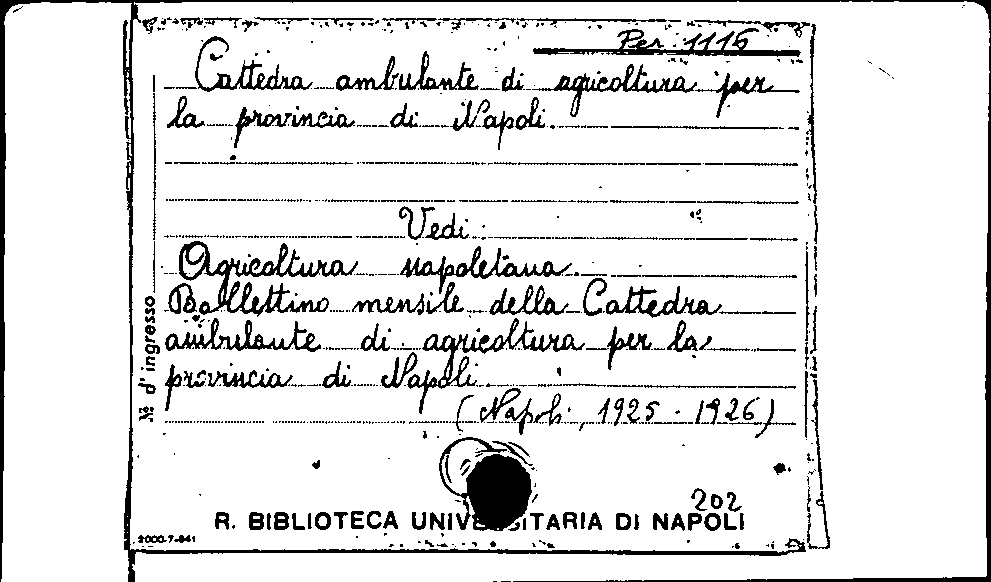 Per. 1116
Cattedra ambulante di agricoltura per
la provincia di Napoli.
Vedi:
Agricoltura napoletana.
Bollettino mensile della Cattedra
ambulante di agricoltura per la
provincia di Napoli.
(Napoli, 1925 - 1926)
№ d'ingresso
202
R. BIBLIOTECA UNIVERSITARIA DI NAPOLI
2000-7-941